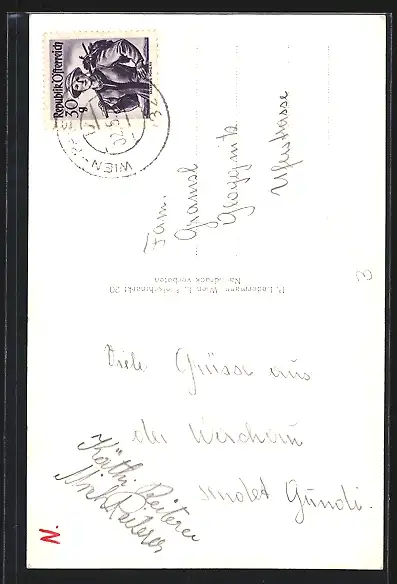 Republik Österreich
30 g
WIEN
Fam.
Gramsl
Gloggnitz
Uferstrasse
P. Ledermann, Wien I., Fleischmarkt 20
Nachdruck verboten
Viele Grüsse aus
der
sendet Gundi.
Käthi Reiterer
N.
3